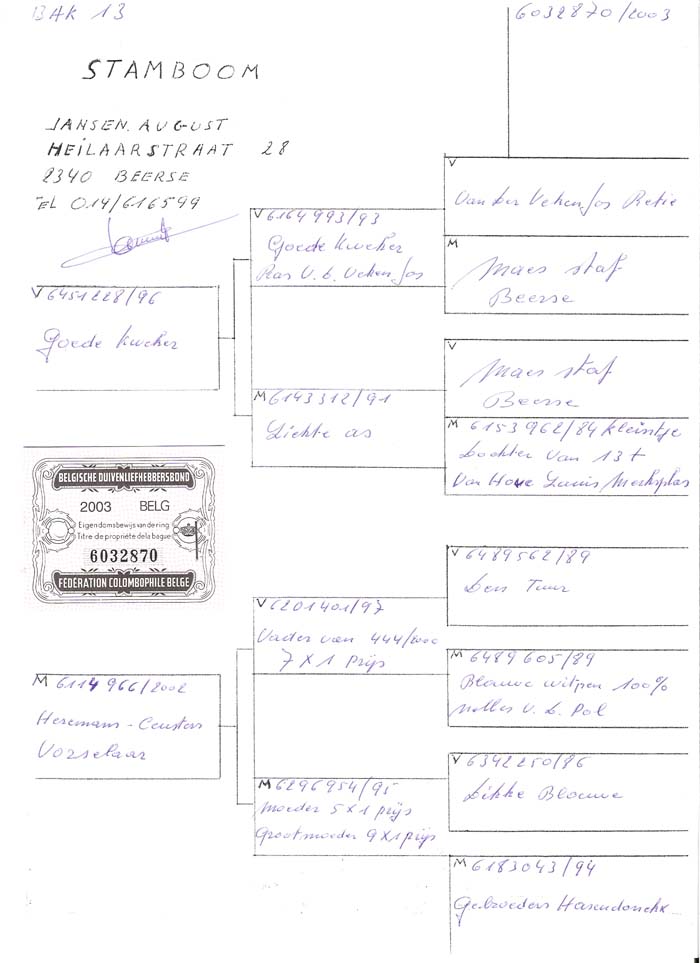 BAK 13
6032870/2003
STAMBOOM
JANSEN. AUGUST
HEILAARSTRAAT 28
2340 BEERSE
TEL 014/616599
V 6451228/96
Goede kweker
V 6164993/93
Goede kweker
Ras V.d. Veken Jos
M 6143312/91
Lichte as
V
Van der Veken Jos Retie
M
Maes staf
Beerse
V
Maes staf
Beerse
M 6153962/84 kleintje
Dochter van 13+
Van Hove Louis Merksplas
BELGISCHE DUIVENLIEFHEBBERSBOND
2003 BELG
Eigendomsbewijs van de ring
Titre de propriété de la bague
6032870
FÉDÉRATION COLOMBOPHILE BELGE
M 6114966/2002
Heremans-Ceusters
Vorselaar
V 6201401/97
Vader van 444/2000
7 x 1 prijs
M 6296954/95
Moeder 5 x 1 prijs
Grootmoeder 9 x 1 prijs
V 6489562/89
Den Tuur
M 6489605/89
Blauwe witpen 100%
V. D. Pol
V 6342250/86
Dikke Blauwe
M 6183043/94
Gebroeders Hasendonckx